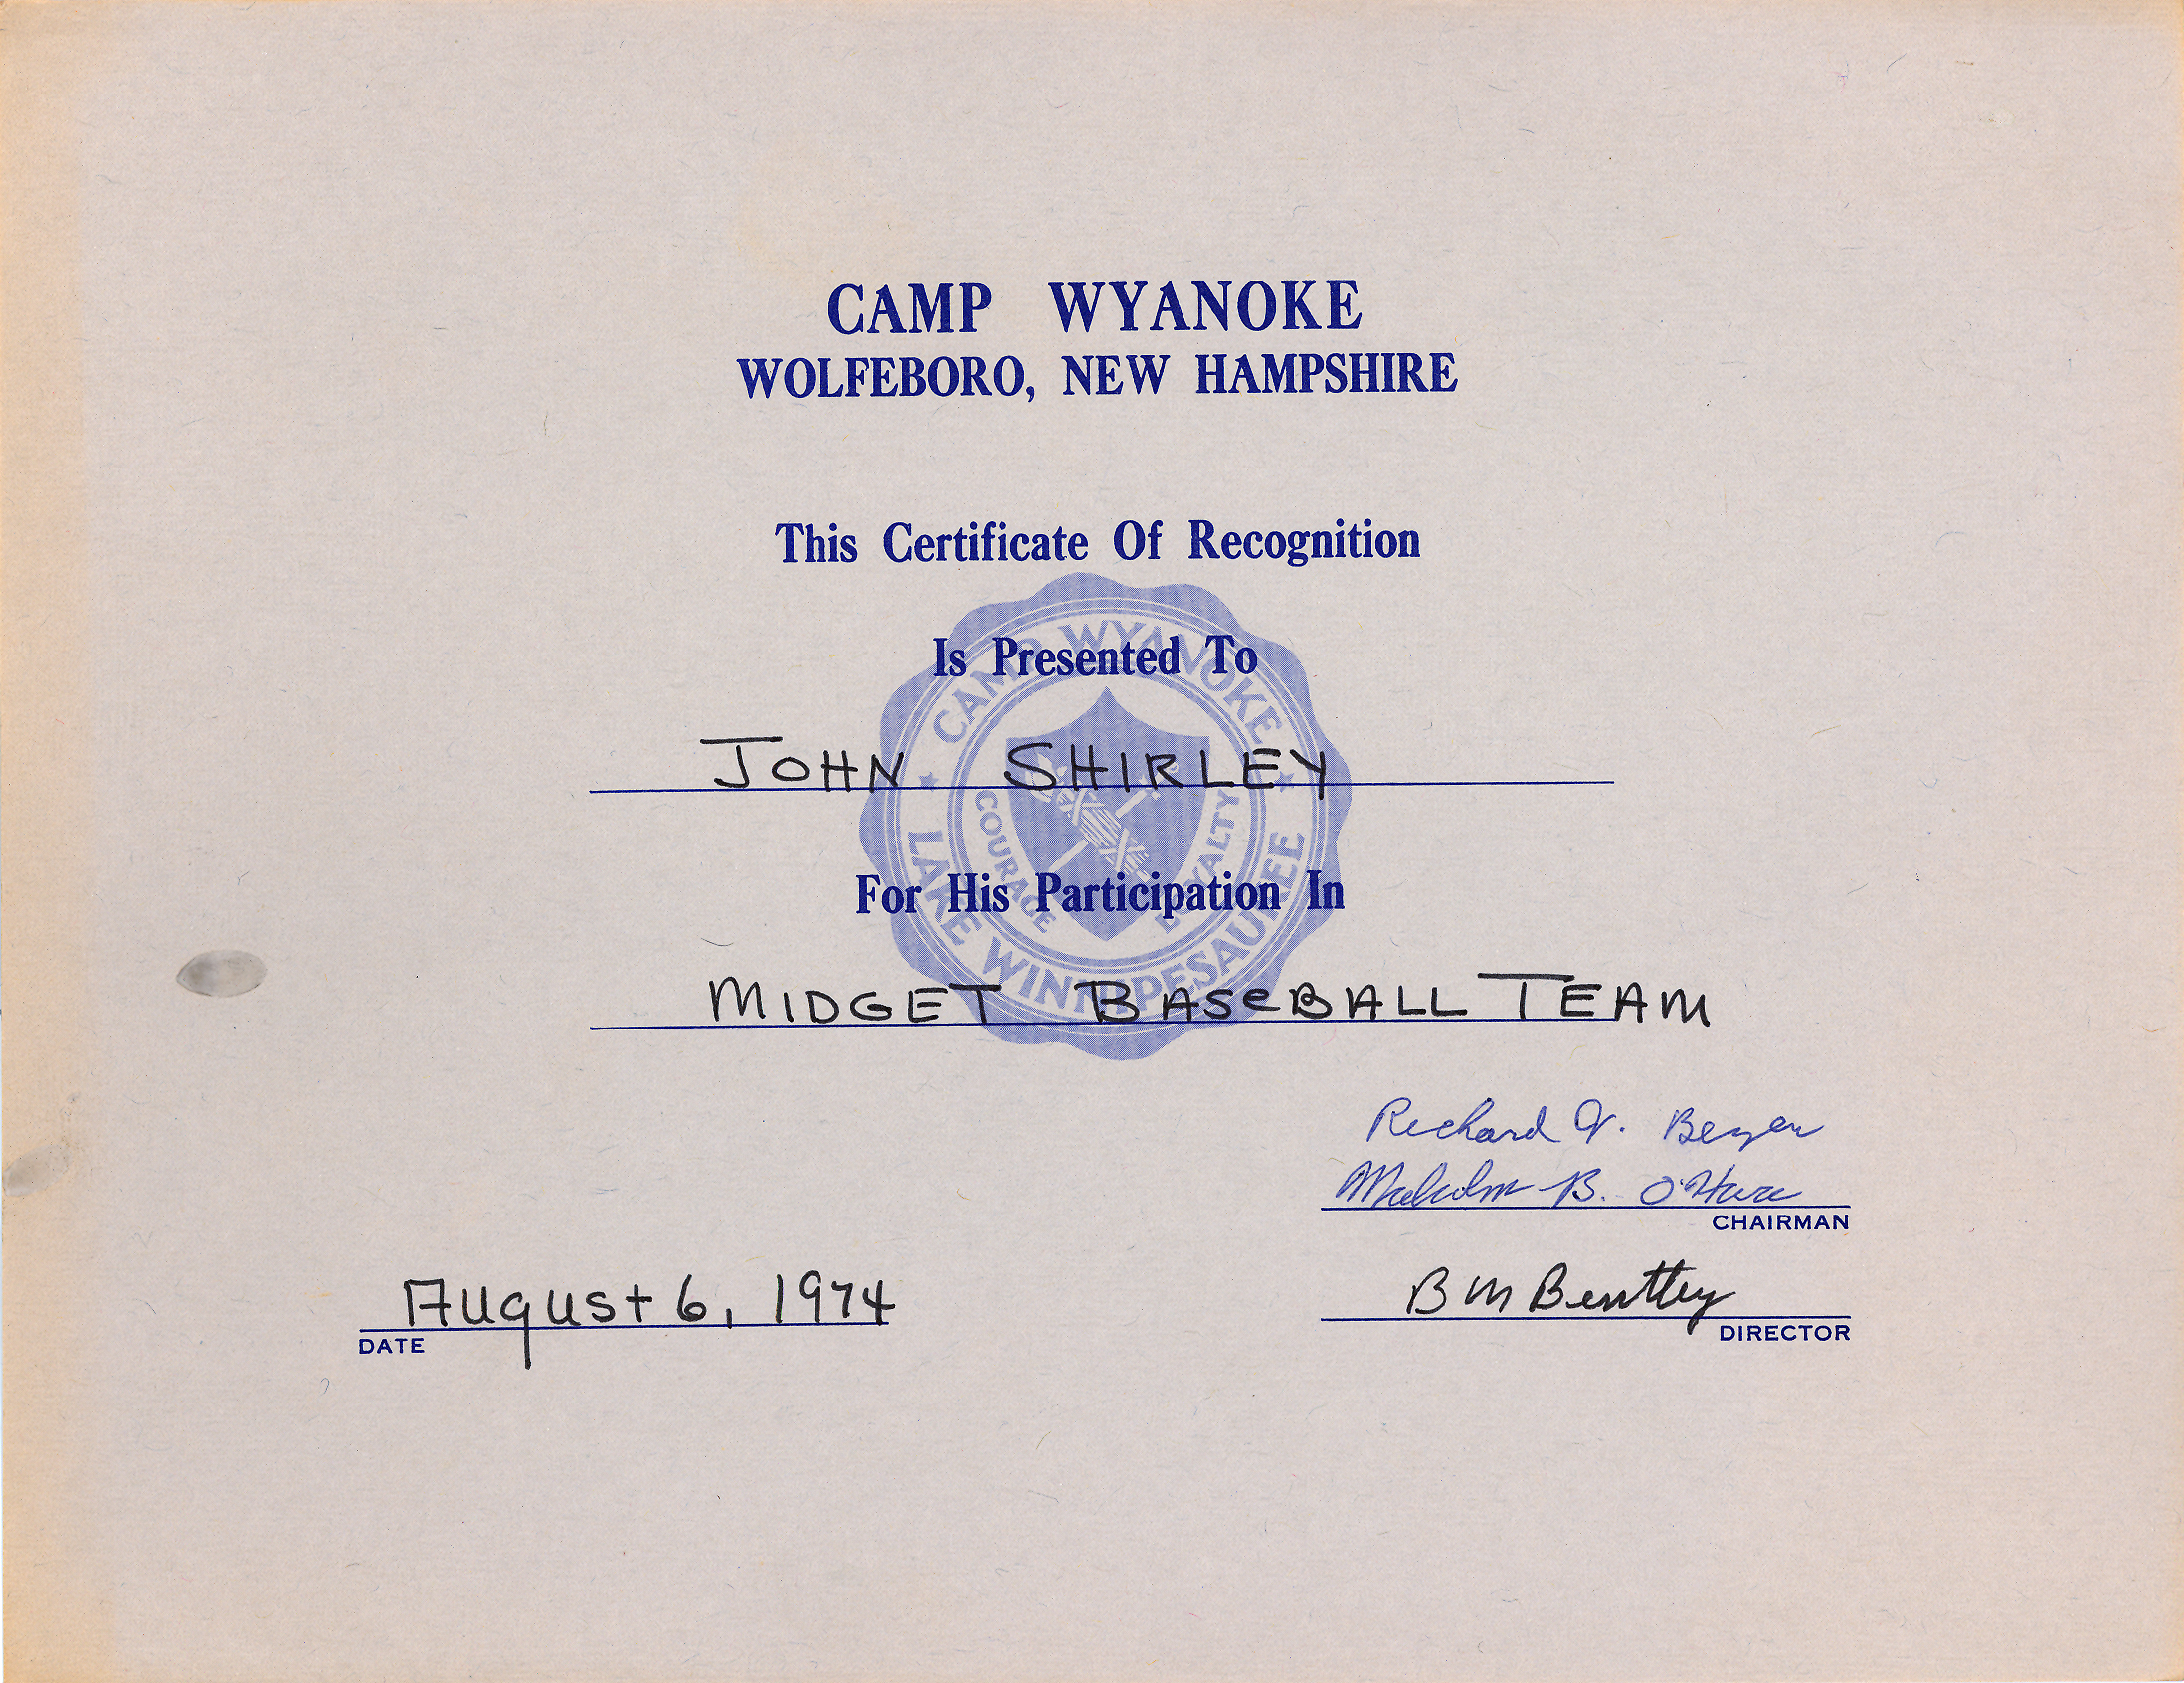 CAMP WYANOKE
WOLFEBORO, NEW HAMPSHIRE
This Certificate Of Recognition
CAMP WYANOKE
Is Presented To
JOHN SHIRLEY
COURAGE
LOYALTY
For His Participation In
LAKE WINNIPESAUKEE
MIDGET BASEBALL TEAM
Richard J. Beyer
Malcolm B. O'Hara
CHAIRMAN
August 6, 1974
DATE
B M Bentley
DIRECTOR